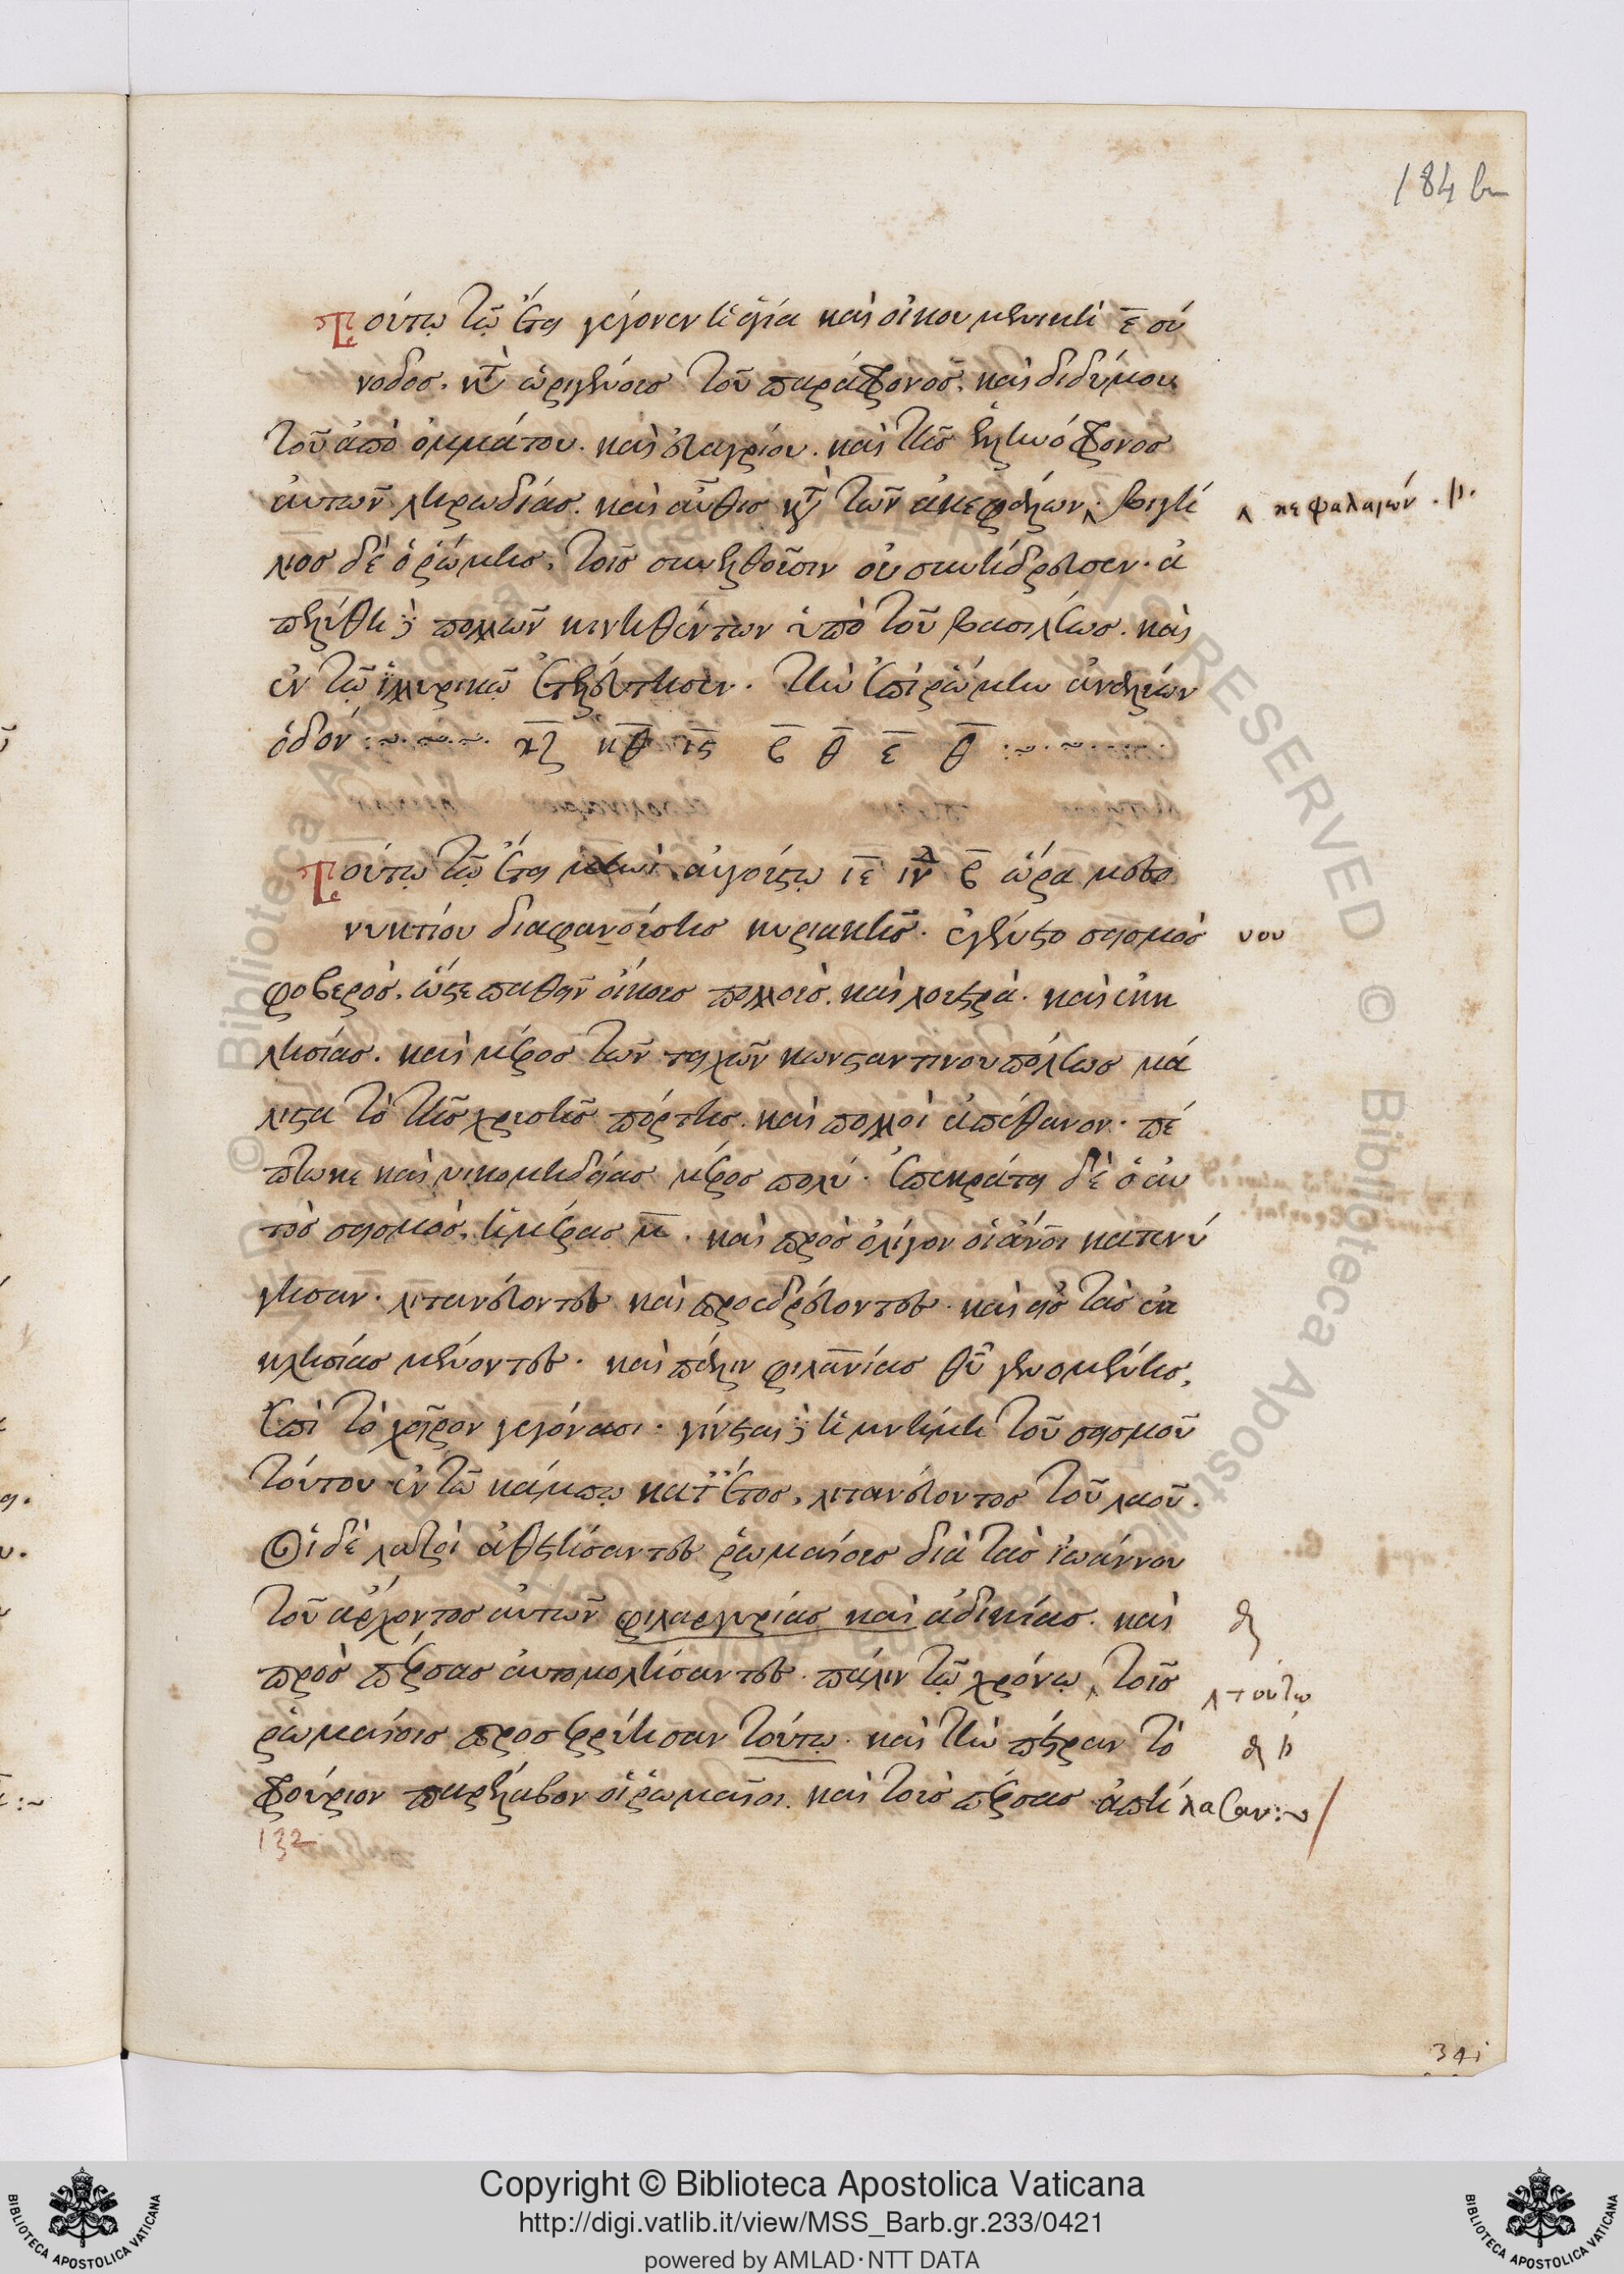 184 bis
Τούτῳ τῷ ἔτει γέγονεν ἡ ἁγία καὶ οἰκουμενικὴ ε̅ σύ
νοδος. κατὰ ὠριγένους τοῦ παράφρονος. καὶ διδύμου
τοῦ ἀπὸ ὀμμάτου. καὶ εὐαγρίου. καὶ τῆς ἑλληνόφρονος
αὐτῶν ληρωδίας. καὶ αὖθις κατὰ τῶν ἀκεφάλων. βιγί
⋏ κεφαλαιων . β.
λιος δὲ ὁ ῥώμης, τοῖς συνελθοῦσιν οὐ συνήδρευσεν. ἀ
πελύθη δὲ πολλῶν κινηθέντων ὑπὸ τοῦ βασιλέως. καὶ
ἐν τῷ ἰλλυρικῷ ἐτελεύτησεν. τὴν ἐπὶ ῥώμην ἀναλύων
ὁδόν
κζ κθ ις ϛ θ ε θ
Τούτῳ τῷ ἔτει μηνὶ αὐγούστῳ ιε ἰν ϛ ὥρα μεσο
νυκτίου διαφανούσης κυριακῆς. ἐγένετο σεισμὸς
νου
φοβερὸς, ὥστε παθεῖν οἴκους πολλοὺς. καὶ λουτρὰ. καὶ ἐκκ
λησίας. καὶ μέρος τῶν τειχῶν κωνσταντινουπόλεως μά
λιστα τὸ τῆς χρυσῆς πόρτης. καὶ πολλοὶ ἀπέθανον. πέ
πτωκε καὶ νικομηδείας μέρος πολύ. ἐπεκράτει δὲ ὁ αὐ
τὸς σεισμὸς, ἡμέρας μ̅. καὶ πρὸς ὀλίγον οἱ ἄνοι κατενύ
γησαν. λιτανεύοντες καὶ προσεδρεύοντες. καὶ εἰς τὰς ἐκ
κλησίας μένοντες. καὶ πάλιν φιλανίας θῦ γενομένης,
ἐπὶ τὸ χεῖρον γεγόνασι. γίνεται δὲ ἡ μνήμη τοῦ σεισμοῦ
τούτου ἐν τῷ κάμπῳ κατ' ἔτος, λιτανεύοντος τοῦ λαοῦ.
Οἱ δὲ λαζοὶ ἀθετήσαντες ῥωμαίους διὰ τὰς ἰωάννου
τοῦ ἄρχοντος αὐτῶν φιλαργυρίας καὶ ἀδικίας. καὶ
πρὸς πέρσας αὐτομολήσαντες. πάλιν τῷ χρόνῳ τοῖς
⋏ τουτω
ῥωμαίοις προσερρύησαν τούτῳ. καὶ τὴν πέτραν τὸ
φρούριον παρέλαβον οἱ ῥωμαῖοι. καὶ τοὺς πέρσας ἀπή
λασαν:~
132
341
Copyright © Biblioteca Apostolica Vaticana
http://digi.vatlib.it/view/MSS_Barb.gr.233/0421
powered by AMLAD·NTT DATA
BIBLIOTECA APOSTOLICA VATICANA
BIBLIOTECA APOSTOLICA VATICANA